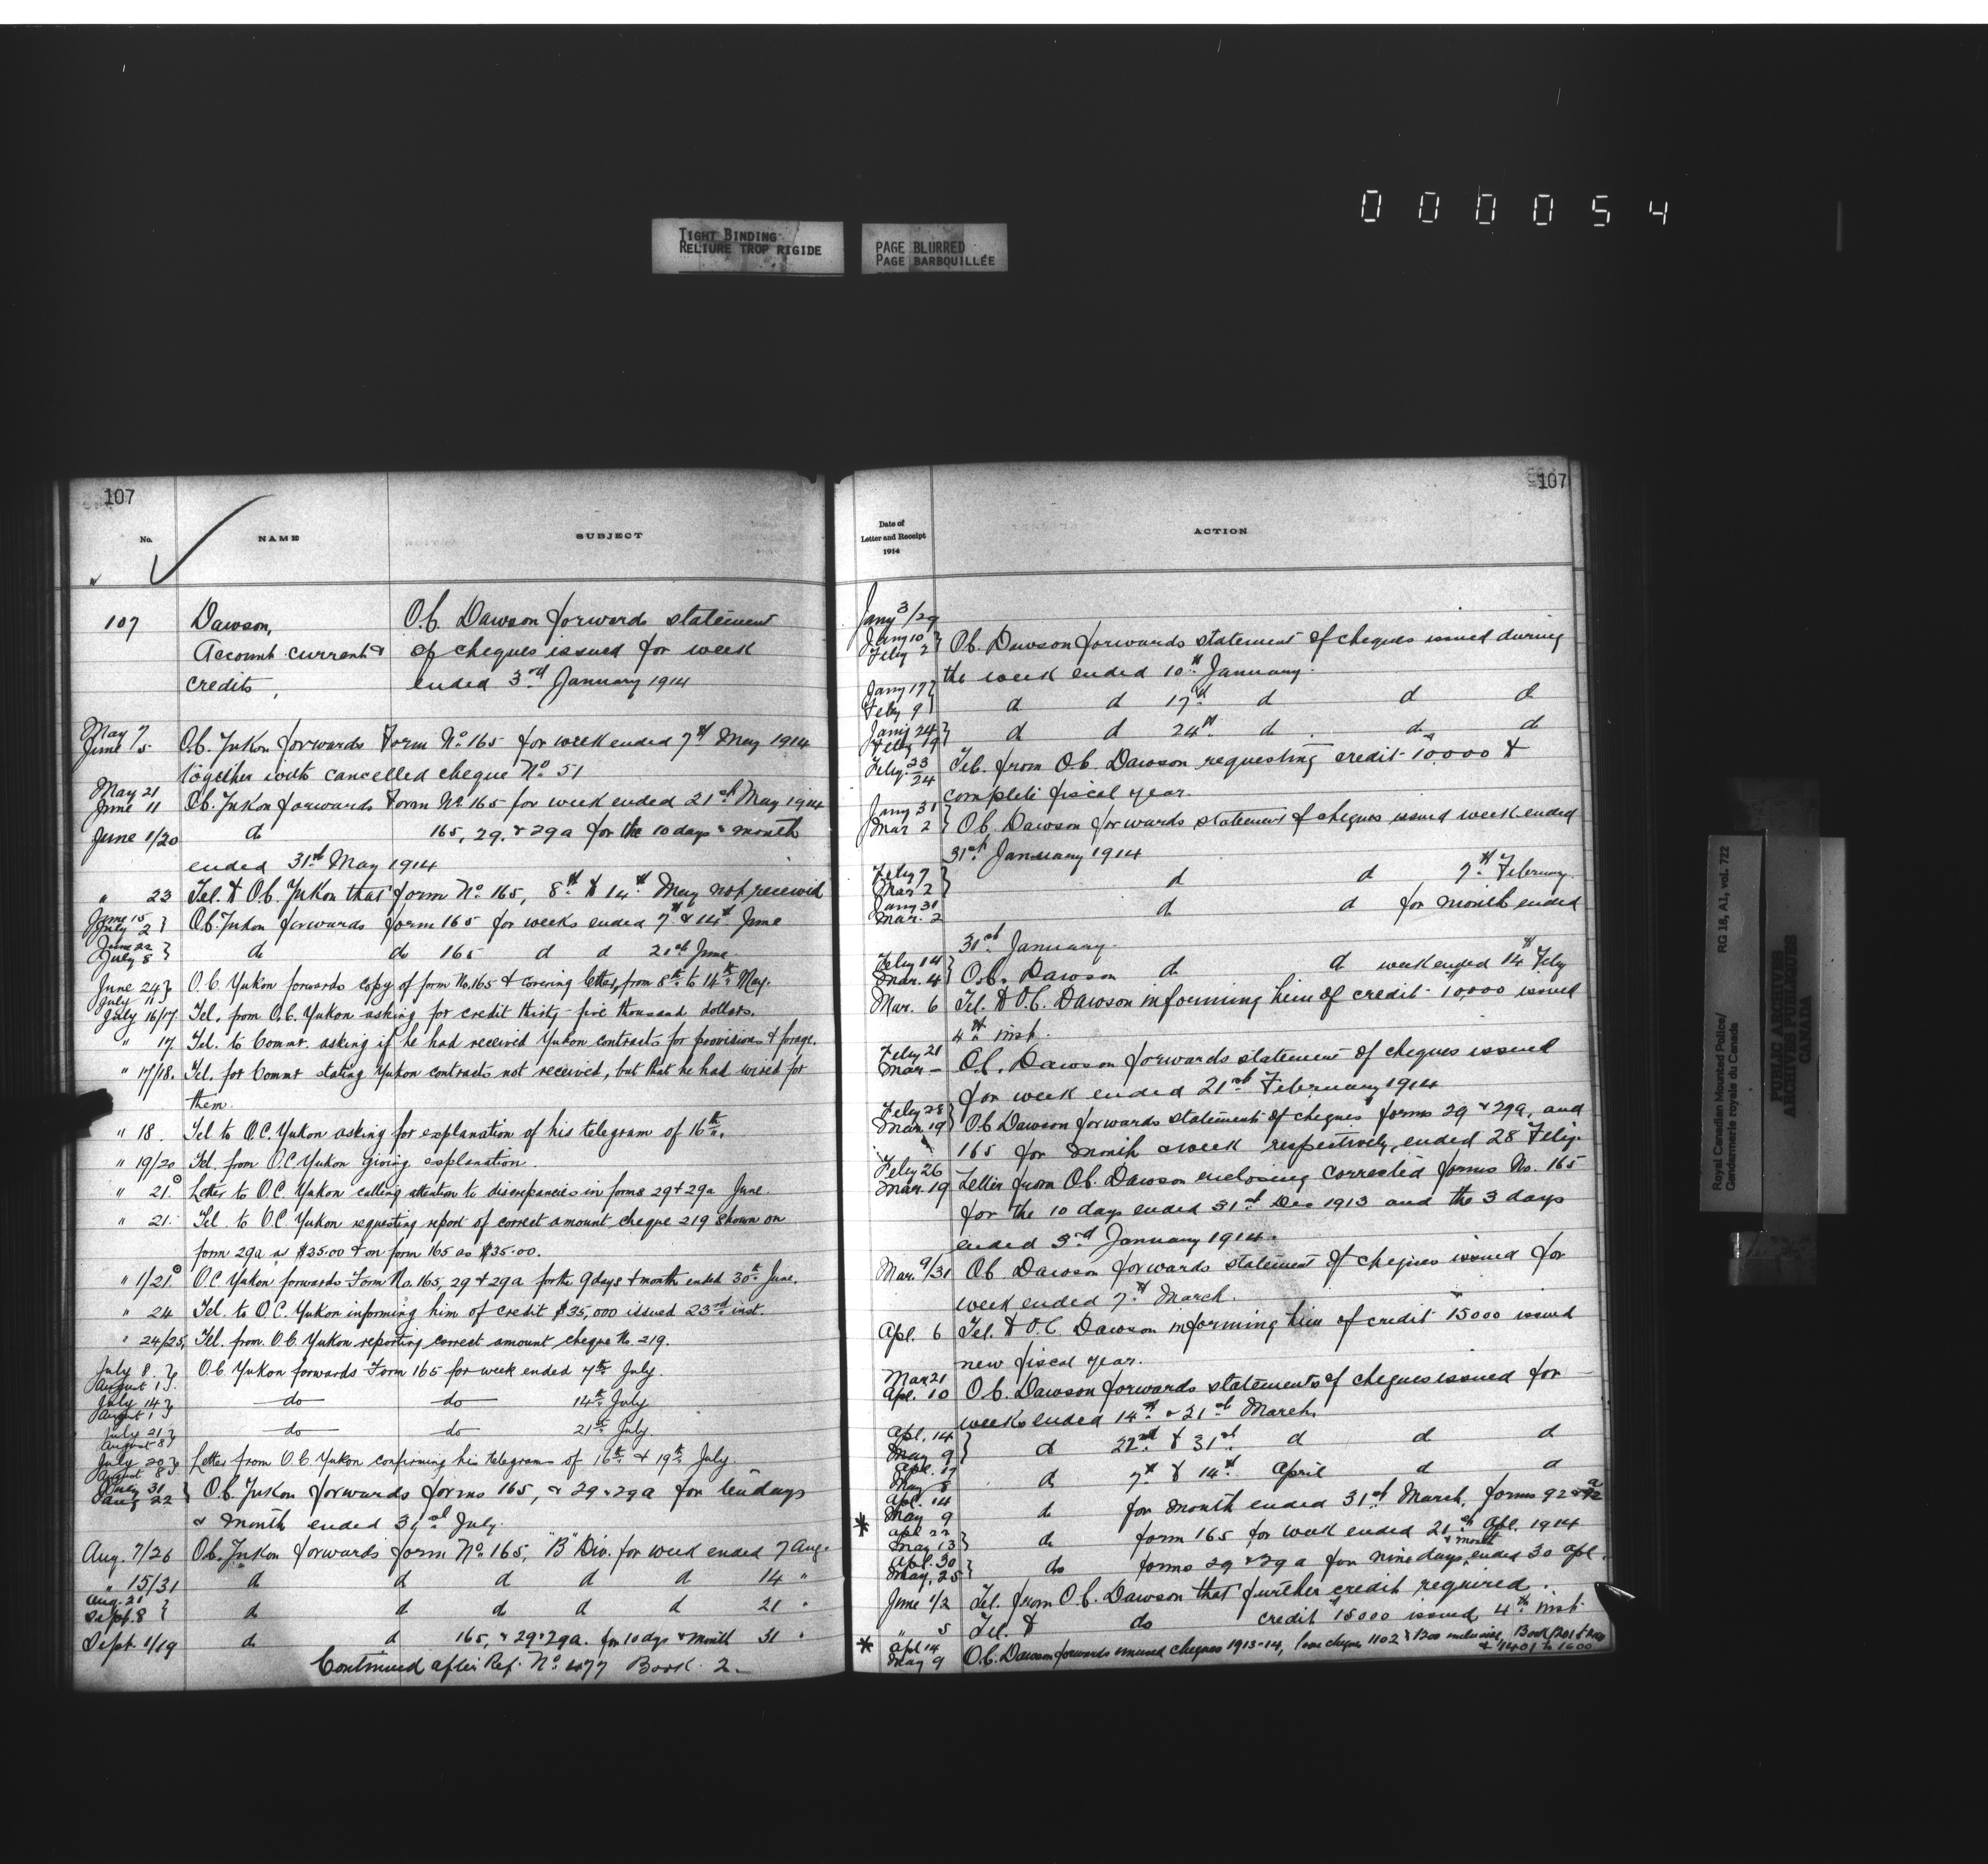 000054
TIGHT BINDING
RELIURE TROP RIGIDE
PAGE BLURRED
PAGE BARBOUILLÉE
107
No.
NAME
SUBJECT
107
Dawson,
Account current &
credits,
O.C. Dawson forwards statement
of cheques issued for week
ended 3rd January 1914
May 7
June 5
O.C. Yukon forwards Form No. 165 for week ended 7th May 1914
together with cancelled cheque No. 51
May 21
June 11
O.C. Yukon forwards Form No. 165 for week ended 21st May 1914
June 1/20 do 165, 29, & 29a for the 10 days & month
ended 31st May 1914
" 23 Tel. to O.C. Yukon that form No. 165, 8th to 14th May not received
June 15
July 2 } O.C. Yukon forwards form 165 for weeks ended 7th & 14th June
June 22
July 8 } do do 165 d d 21st June
June 24
July 11 } O.C. Yukon forwards copy of form No. 165 & covering letter, from 8th to 14th May.
July 16/17 Tel. from O.C. Yukon asking for credit thirty-five thousand dollars.
" 17 Tel. to Commr. asking if he had received Yukon contracts for provisions & forage.
" 17/18. Tel. for Commr stating Yukon contracts not received, but that he had wired for
them.
" 18. Tel to O.C. Yukon asking for explanation of his telegram of 16th.
" 19/20 Tel. from O.C. Yukon giving explanation.
" 21. Letter to O.C. Yukon calling attention to discrepancies in forms 29 & 29a June.
" 21. Tel. to O.C. Yukon requesting report of correct amount cheque 219 shown on
form 29a as $25.00 & on form 165 as $35.00.
" 1/21. O.C. Yukon forwards Form No. 165, 29 & 29a for the 9 days & month ended 30th June.
" 24 Tel. to O.C. Yukon informing him of credit $35,000 issued 23rd inst.
" 24/25, Tel. from O.C. Yukon reporting correct amount cheque No. 219.
July 8
August 1 } O.C. Yukon forwards Form 165 for week ended 7th July.
July 14
August 1 } do do 14th July
July 21
August 8 } do do 21st July
July 20
August 8 } Letter from O.C. Yukon confirming his telegrams of 16th & 19th July.
July 31
Aug 22 } O.C. Yukon forwards forms 165, & 29 & 29a for ten days
& month ended 31st July.
Aug. 7/26 O.C. Yukon forwards form No. 165, "B" Div. for week ended 7 Aug.
" 15/31 d d d d d 14 "
Aug. 21
Sept. 8 } d d d d d 21 "
Sept. 1/19 d d 165, & 29 & 29a. for 10 dys & month 31 "
Continued after Ref. No. 1077 Book 2.
107
Date of
Letter and Receipt
1914
ACTION
Jany 3/29
Jany 10
Feby 2 } O.C. Dawson forwards statement of cheques issued during
the week ended 10th January.
Jany 17
Feby 9 } d d 17th d d d
Jany 24
Feby 19 } d d 24th d d d
Feby. 23/24 Tel. from O.C. Dawson requesting credit 10,000 to
complete fiscal year.
Jany 31
Mar 2 } O.C. Dawson forwards statement of cheques issued week ended
31st January 1914
Feby 7
Mar 2 } d d 7th February.
Jany 31
Mar. 2 d d for month ended
31st January.
Feby 14
Mar. 4 } O.C. Dawson d d week ended 14th Feby
Mar. 6 Tel. to O.C. Dawson informing him of credit 10,000 issued
4th inst.
Feby 21
Mar — O.C. Dawson forwards statement of cheques issued
for week ended 21st February 1914
Feby 28
Mar. 19 } O.C. Dawson forwards statements of cheques forms 29 & 29a, and
165 for month & week respectively, ended 28 Feby.
Feby 26
Mar. 19 Letter from O.C. Dawson enclosing corrected forms No. 165
for the 10 days ended 31st Dec 1913 and the 3 days
ended 3rd January 1914.
Mar. 9/31 O.C. Dawson forwards statement of cheques issued for
week ended 7th March.
Apl. 6 Tel. to O.C. Dawson informing him of credit 15000 issued
new fiscal year.
Mar 21
Apl. 10 O.C. Dawson forwards statements of cheques issued for
weeks ended 14th & 21st March.
Apl. 14
May 9 } d 22nd to 31st d d d
Apl. 17
May 8 d 7th & 14th April d d
Apl. 14
May 9 do for month ended 31st March, forms 92 &
* Apl 22
May 13 } do form 165 for week ended 21st Apl. 1914
Apl. 30
May, 25 } do forms 29 & 29a for nine days & month ended 30 Apl.
June 1/2 Tel. from O.C. Dawson that further credit required.
" 5 Tel. to do credit $15000 issued 4th inst.
* Apl 14
May 9 O.C. Dawson forwards unused cheques 1913-14, loose cheques 1102 to 1200 inclusive, Book 1201 to
& 1401 to 1600
Royal Canadian Mounted Police/
Gendarmerie royale du Canada
RG 18, A1, vol. 722
PUBLIC ARCHIVES
ARCHIVES PUBLIQUES
CANADA